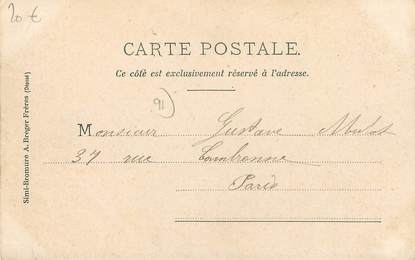 20 €
CARTE POSTALE.
Ce côté est exclusivement réservé à l'adresse.
91
Monsieur Gustave Mulot
37 rue Cambronne
Paris
Simi-Bromure A. Breger Frères (Déposé)